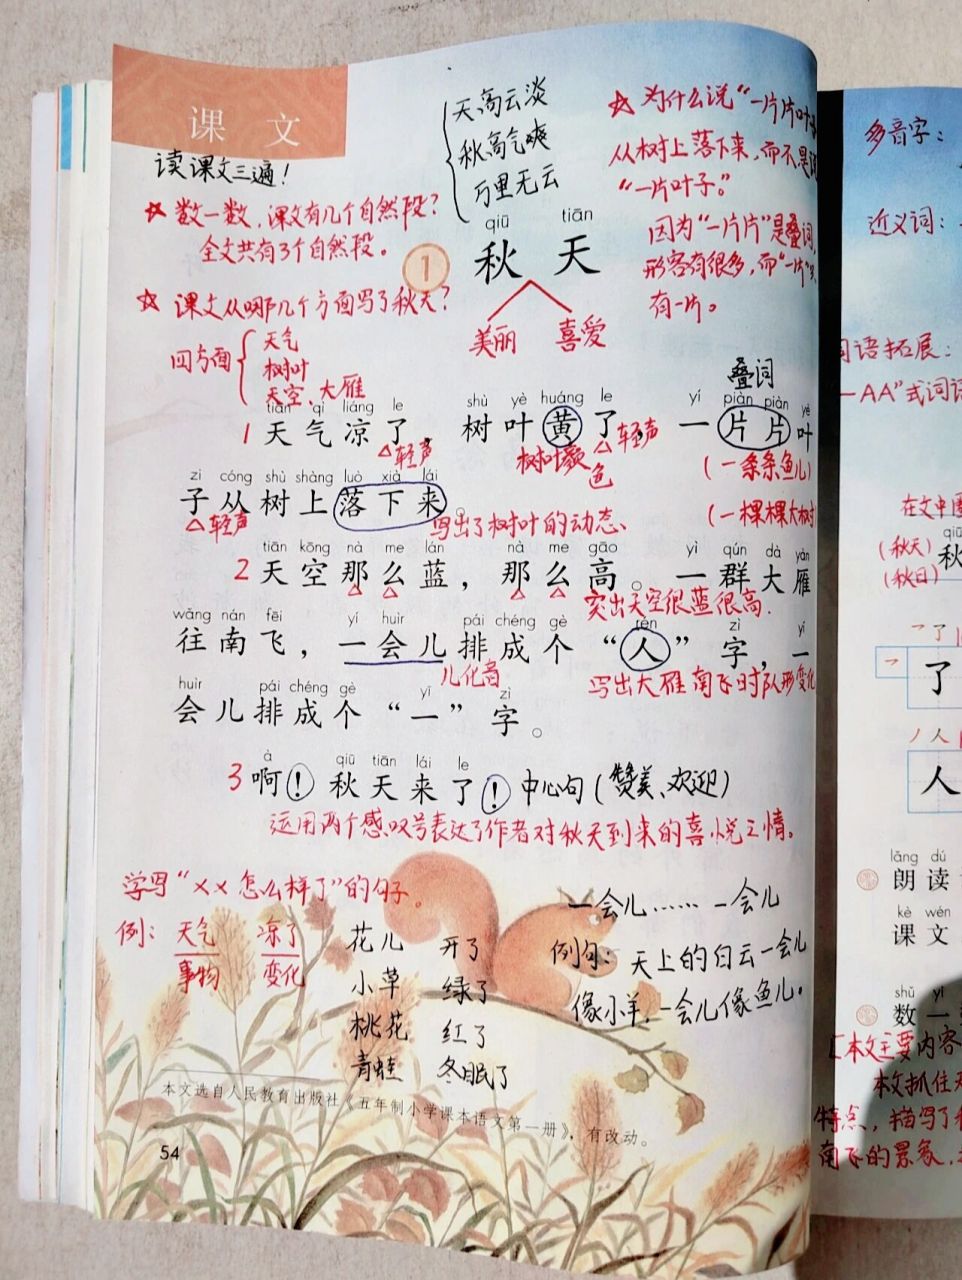 课 文
读课文三遍！
天高云淡
秋高气爽
万里无云
☆ 为什么说“一片片叶子
从树上落下来，而不是说
“一片叶子。”
因为“一片片”是叠词，
形容有很多，而“一片”只
有一片。
☆ 数一数，课文有几个自然段？
全文共有3个自然段。
qiū tiān
1 秋 天
美丽 喜爱
☆ 课文从哪几个方面写了秋天？
四方面
天气
树叶
天空、大雁
叠词
tiān qì liáng le shù yè huáng le yí piàn piàn yè
1 天气凉了，树叶黄了，一片片叶
△轻声 树叶变色 △轻声 (一条条鱼儿)
zi cóng shù shàng luò xià lái
子从树上落下来。
△轻声 写出了树叶的动态、 (一棵棵大树)
tiān kōng nà me lán nà me gāo yì qún dà yàn
2 天空那么蓝，那么高。一群大雁
△ △ △ △ 突出天空很蓝很高.
wǎng nán fēi yí huìr pái chéng gè rén zì yí
往南飞，一会儿排成个“人”字，一
儿化音 写出大雁南飞时队形变化
huìr pái chéng gè yī zì
会儿排成个“一”字。
à qiū tiān lái le
3 啊！秋天来了！中心句（赞美、欢迎）
运用两个感叹号表达了作者对秋天到来的喜悦之情。
学写“×× 怎么样了”的句子。
例：天气 凉了
事物 变化
花儿 开了
小草 绿了
桃花 红了
青蛙 冬眠了
一会儿……一会儿
例句：天上的白云一会儿
像小羊，一会儿像鱼儿。
本文选自人民教育出版社《五年制小学课本语文第一册》，有改动。
54
多音字：
近义词：
词语拓展：
一AA”式词语
在文中圈
(秋天) qiū
(秋日) 秋
乛了
乛 了
丿人
人
lǎng dú
朗读
kè wén
课文
shǔ yī
数一
[本文主要内容
本文抓住
特点，描写了
南飞的景象，